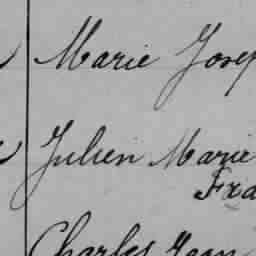 Marie Josep
Julien Marie
Fra
Charles Jean